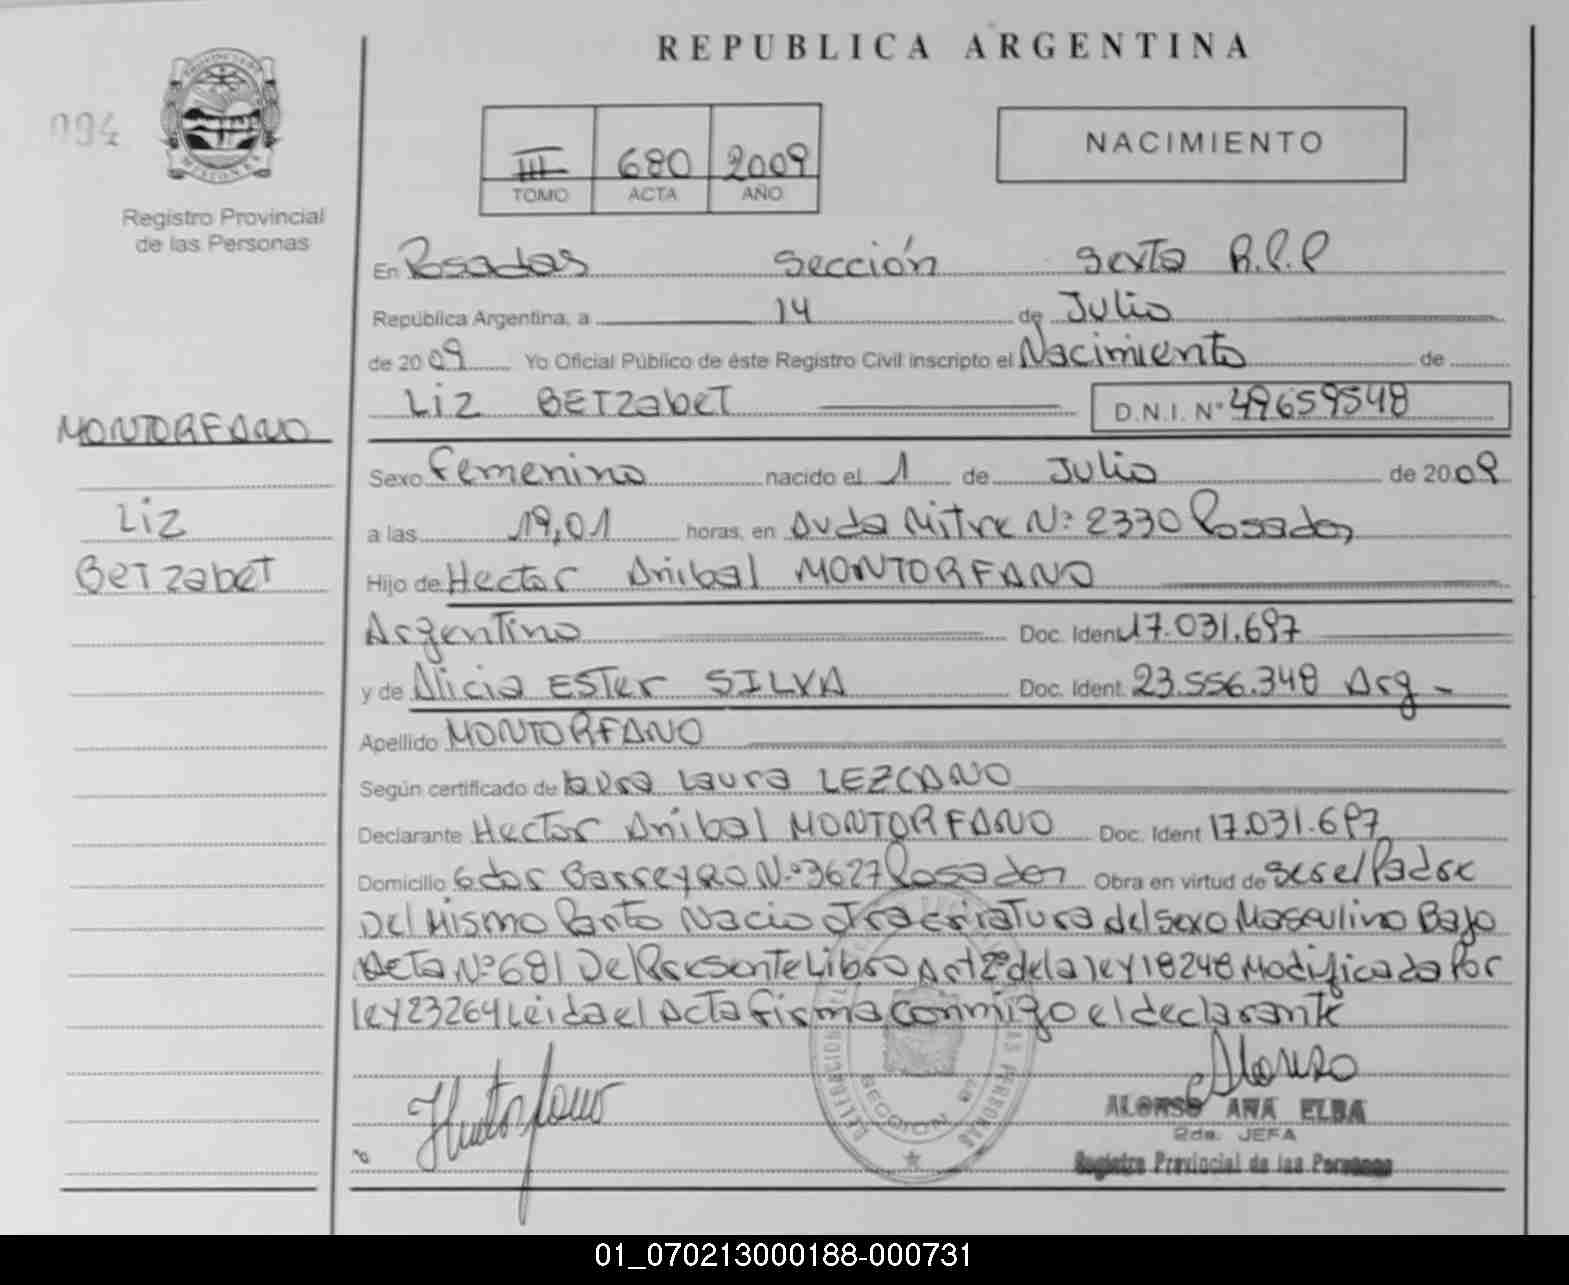 REPUBLICA ARGENTINA
094
PROVINCIA DE
MISIONES
Registro Provincial
de las Personas
III 680 2009
TOMO ACTA AÑO
NACIMIENTO
En Posadas Sección Sexta R.P.P
República Argentina, a 14 de Julio
de 2009 Yo Oficial Público de éste Registro Civil inscripto el Nacimiento de
Liz BETzabeT D.N.I. N° 49659548
MONTORFANO
Liz
BeTzabeT
Sexo Femenino nacido el 1 de Julio de 2009
a las 19,01 horas, en Avda Mitre N° 2330 Posadas
Hijo de Hector Anibal MONTORFANO
Argentino Doc. Ident 17.031.697
y de Alicia ESTer SILVA Doc. Ident. 23.556.348 Arg -
Apellido MONTORFANO
Según certificado de Laura LEZCANO
Declarante Hector Anibal MONTORFANO Doc. Ident 17.031.697
Domicilio Gdor Barreyro N° 3627 Posadas Obra en virtud de ser el Padre
Del Mismo Parto Nacio otra criatura del sexo Masculino Bajo
Acta N° 681 Del Presente Libro Art 2° de la ley 18248 Modificada Por
ley 23264 Leida el Acta firma conmigo el declarante
ALONSO ANA ELBA
2da. JEFA
Registro Provincial de las Personas
SECCIONAL 6ª
01_070213000188-000731